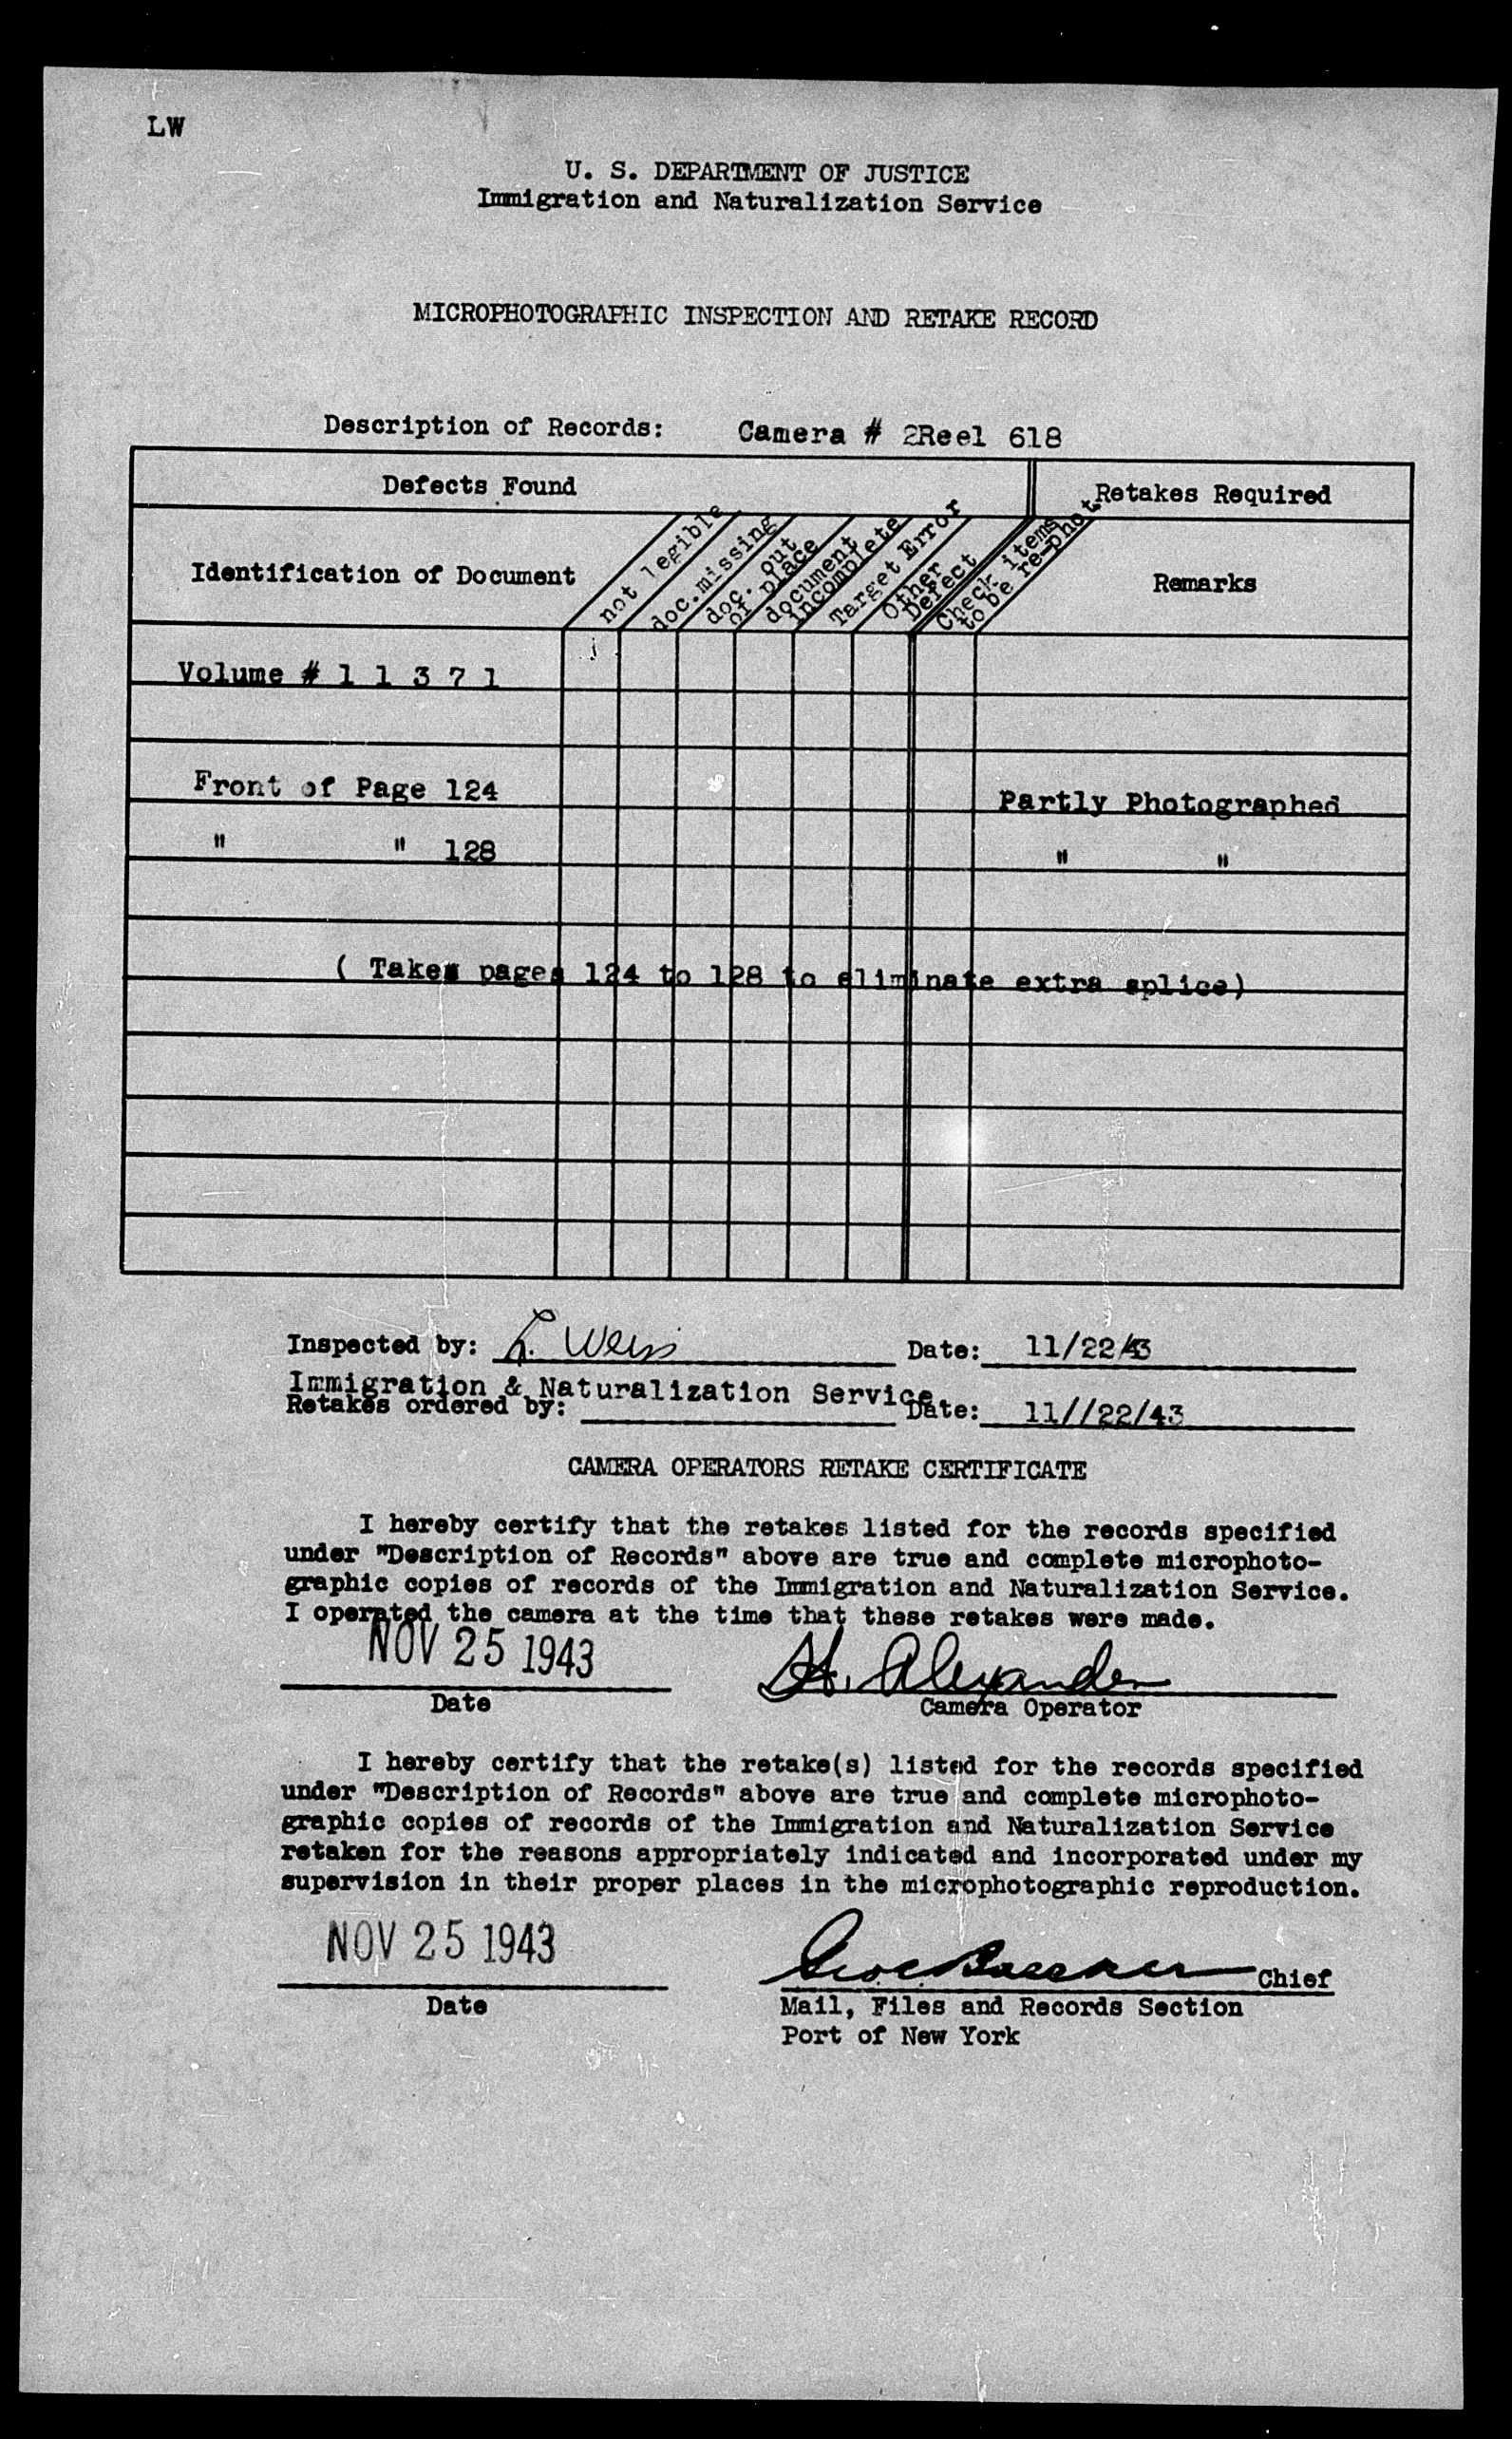 LW
U. S. DEPARTMENT OF JUSTICE
Immigration and Naturalization Service
MICROPHOTOGRAPHIC INSPECTION AND RETAKE RECORD
Description of Records: Camera # 2Reel 618
Defects Found Retakes Required
Identification of Document
not legible
doc.missing
doc. out
of place
document
incomplete
Target Error
Other
Defect
Check items
to be re-phot.
Remarks
Volume # 1 1 3 7 1
Front of Page 124 Partly Photographed
" " 128 " "
( Takes pages 124 to 128 to eliminate extra splice)
Inspected by: L. Weiss Date: 11/22/43
Immigration & Naturalization Service
Retakes ordered by: Date: 11//22/43
CAMERA OPERATORS RETAKE CERTIFICATE
I hereby certify that the retakes listed for the records specified
under "Description of Records" above are true and complete microphoto-
graphic copies of records of the Immigration and Naturalization Service.
I operated the camera at the time that these retakes were made.
NOV 25 1943 H. Alexander
Date Camera Operator
I hereby certify that the retake(s) listed for the records specified
under "Description of Records" above are true and complete microphoto-
graphic copies of records of the Immigration and Naturalization Service
retaken for the reasons appropriately indicated and incorporated under my
supervision in their proper places in the microphotographic reproduction.
NOV 25 1943 Chief
Date Mail, Files and Records Section
Port of New York